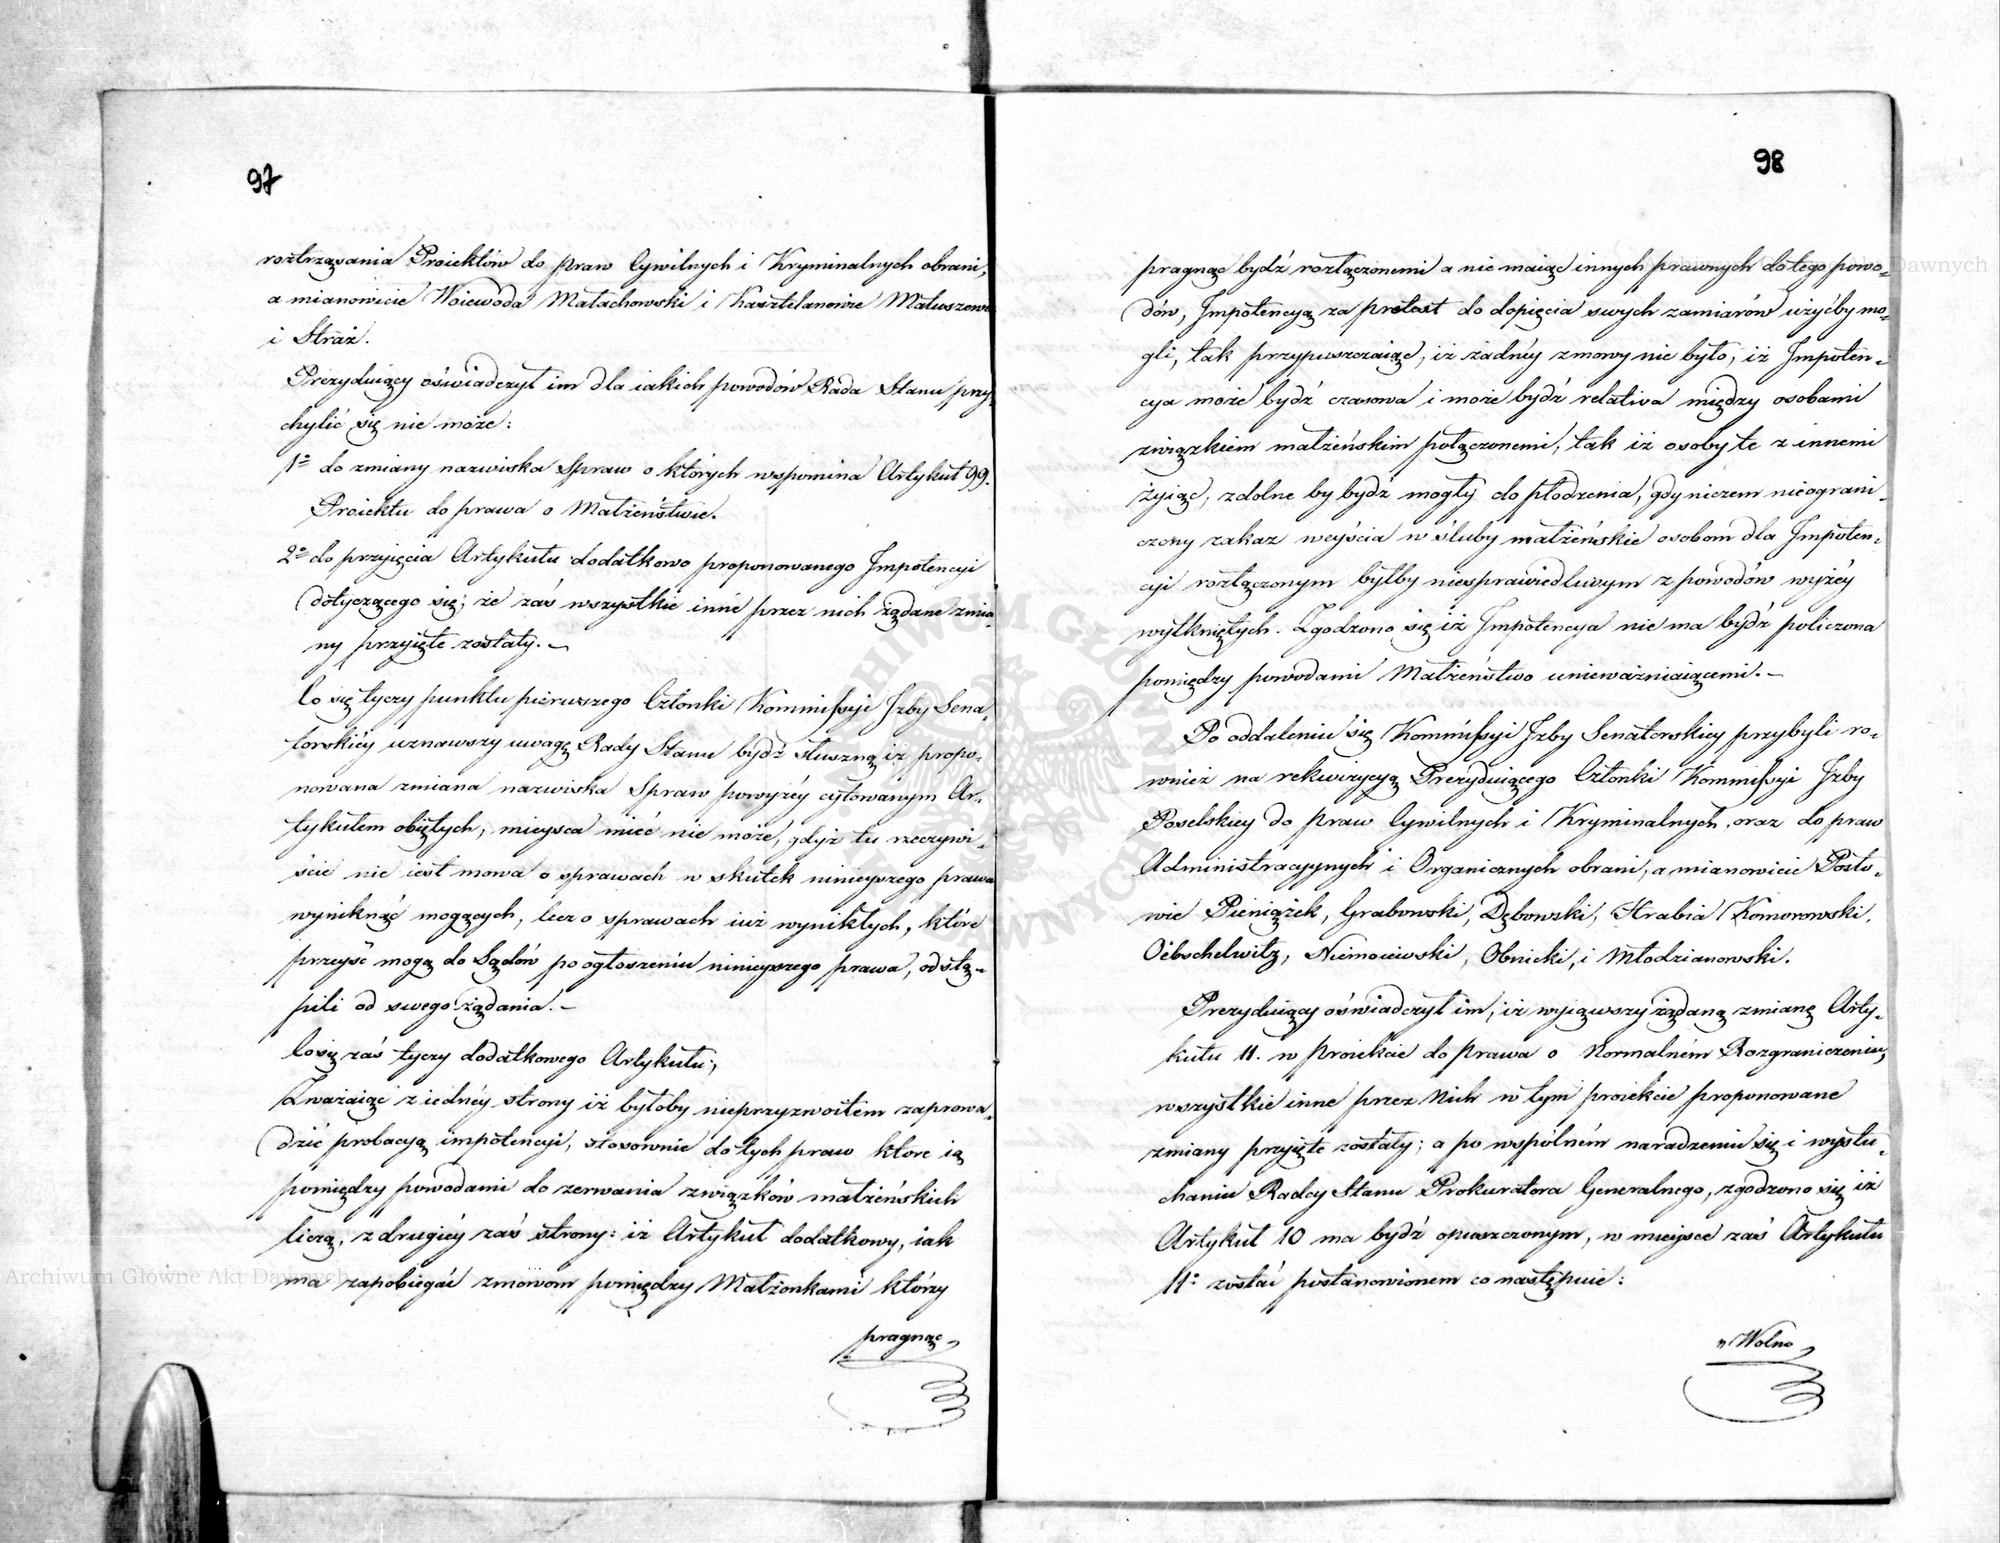 97
roztrząsania Proiektów do praw Cywilnych i Kryminalnych obrani,
a mianowicie Woiewoda Małachowski i Kasztelanowie Matuszewic
i Straż.
Prezyduiący oświadczył im dla iakich powodów Rada Stanu przy-
chylić się nie może:
1º do zmiany nazwiska Spraw o których wspomina Artykuł 99.
Proiektu do prawa o Małżeństwie.
2º do przyięcia Artykułu dodatkowo proponowanego Impotencyi
dotyczącego się; że zaś wszystkie inne przez nich żądane zmia-
ny przyięte zostały. –
Co się tyczy punktu pierwszego Członki Kommissyi Izby Sena-
torskiéy uznawszy uwagę Rady Stanu bydź słuszną iż propo-
nowana zmiana nazwiska Spraw powyżéy cytowanym Ar-
tykułem obiętych, mieysca mieć nie może, gdyż tu rzeczywi-
ście nie iest mowa o sprawach w skutek ninieyszego prawa
wyniknąć mogących, lecz o sprawach iuż wynikłych, które
przeyść mogą do Sądów po ogłoszeniu ninieyszego prawa, odstą-
pili od swego żądania. –
Co się zaś tyczy dodatkowego Artykułu;
Zważaiąc z iednéy strony iż byłoby nieprzyzwoitem zaprowa-
dzić probacyą impotencyi, stosownie do tych praw które ią
pomiędzy powodami do zerwania związków małżeńskich
liczą, z drugiéy zaś strony: iż Artykuł dodatkowy, iak
ma zapobiegać zmowom pomiędzy Małżonkami którzy
pragnąc
98
pragnąc bydź rozłączonemi a nie maiąc innych prawnych do tego powo-
dów, Impotencyą za pretext do dopięcia swych zamiarów użyćby mo-
gli, tak przypuszczaiąc, iż żadnéy zmowy nie było, iż Impoten-
cya może bydź czasowa i może bydź relativa między osobami
związkiem małżeńskim połączonemi, tak iż osoby te z innemi
żyiąc, zdolne by bydź mogły do płodzenia, gdy niczem nieograni-
czony zakaz weyścia w śluby małżeńskie osobom dla Impoten-
cyi rozłączonym byłby niesprawiedliwym z powodów wyżéy
wytkniętych. Zgodzono się iż Impotencya nie ma bydź policzona
pomiędzy powodami Małżeństwo unieważniaiącemi. –
Po oddaleniu się Kommissyi Izby Senatorskiey przybyli ro-
wnież na rekwizycyą Prezyduiącego Członki Kommissyi Izby
Poselskiey do praw Cywilnych i Kryminalnych, oraz do praw
Administracyynych i Organicznych obrani, a mianowicie Posło-
wie Pieniążek, Grabowski, Dębowski, Hrabia Komorowski,
Oebschelwitz, Niemoiewski, Obnicki, i Młodzianowski.
Prezyduiący oświadczył im, iż wyiąwszy żądaną zmianę Arty-
kułu 11. w proiekcie do prawa o Normalném Rozgraniczeniu,
wszystkie inne przez Nich w tym proiekcie proponowane
zmiany przyięte zostały; a po wspólném naradzeniu się i wysłu-
chaniu Radcy Stanu Prokuratora Generalnego, zgodzono się iż
Artykuł 10 ma bydź opuszczonym, w mieysce zaś Artykułu
11º zostać postanowionem co następuie:
„Wolno
Archiwum Główne Akt Dawnych
ARCHIWUM GŁÓWNE AKT DAWNYCH